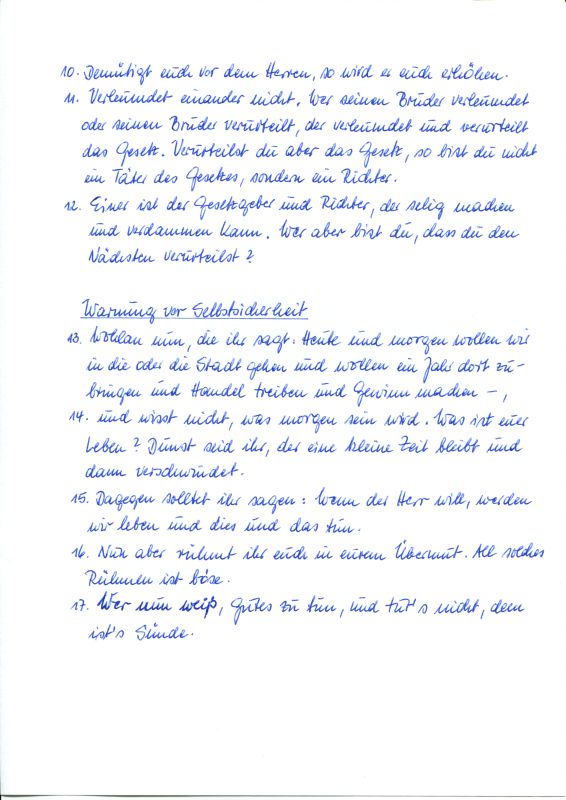 10. Demütigt euch vor dem Herren, so wird er euch erhöhen.
11. Verleumdet einander nicht. Wer seinen Bruder verleumdet
oder seinen Bruder verurteilt, der verleumdet und verurteilt
das Gesetz. Verurteilst du aber das Gesetz, so bist du nicht
ein Täter des Gesetzes, sondern ein Richter.
12. Einer ist der Gesetzgeber und Richter, der selig machen
und verdammen kann. Wer aber bist du, dass du den
Nächsten verurteilst?
Warnung vor Selbstsicherheit
13. Wohlan nun, die ihr sagt: Heute und morgen wollen wir
in die oder die Stadt gehen und wollen ein Jahr dort zu-
bringen und Handel treiben und Gewinn machen –,
14. und wisst nicht, was morgen sein wird. Was ist euer
Leben? Dunst seid ihr, der eine kleine Zeit bleibt und
dann verschwindet.
15. Dagegen solltet ihr sagen: Wenn der Herr will, werden
wir leben und dies und das tun.
16. Nun aber rühmt ihr euch in eurem Übermut. All solches
Rühmen ist böse.
17. Wer nun weiß, Gutes zu tun, und tut's nicht, dem
ist's Sünde.